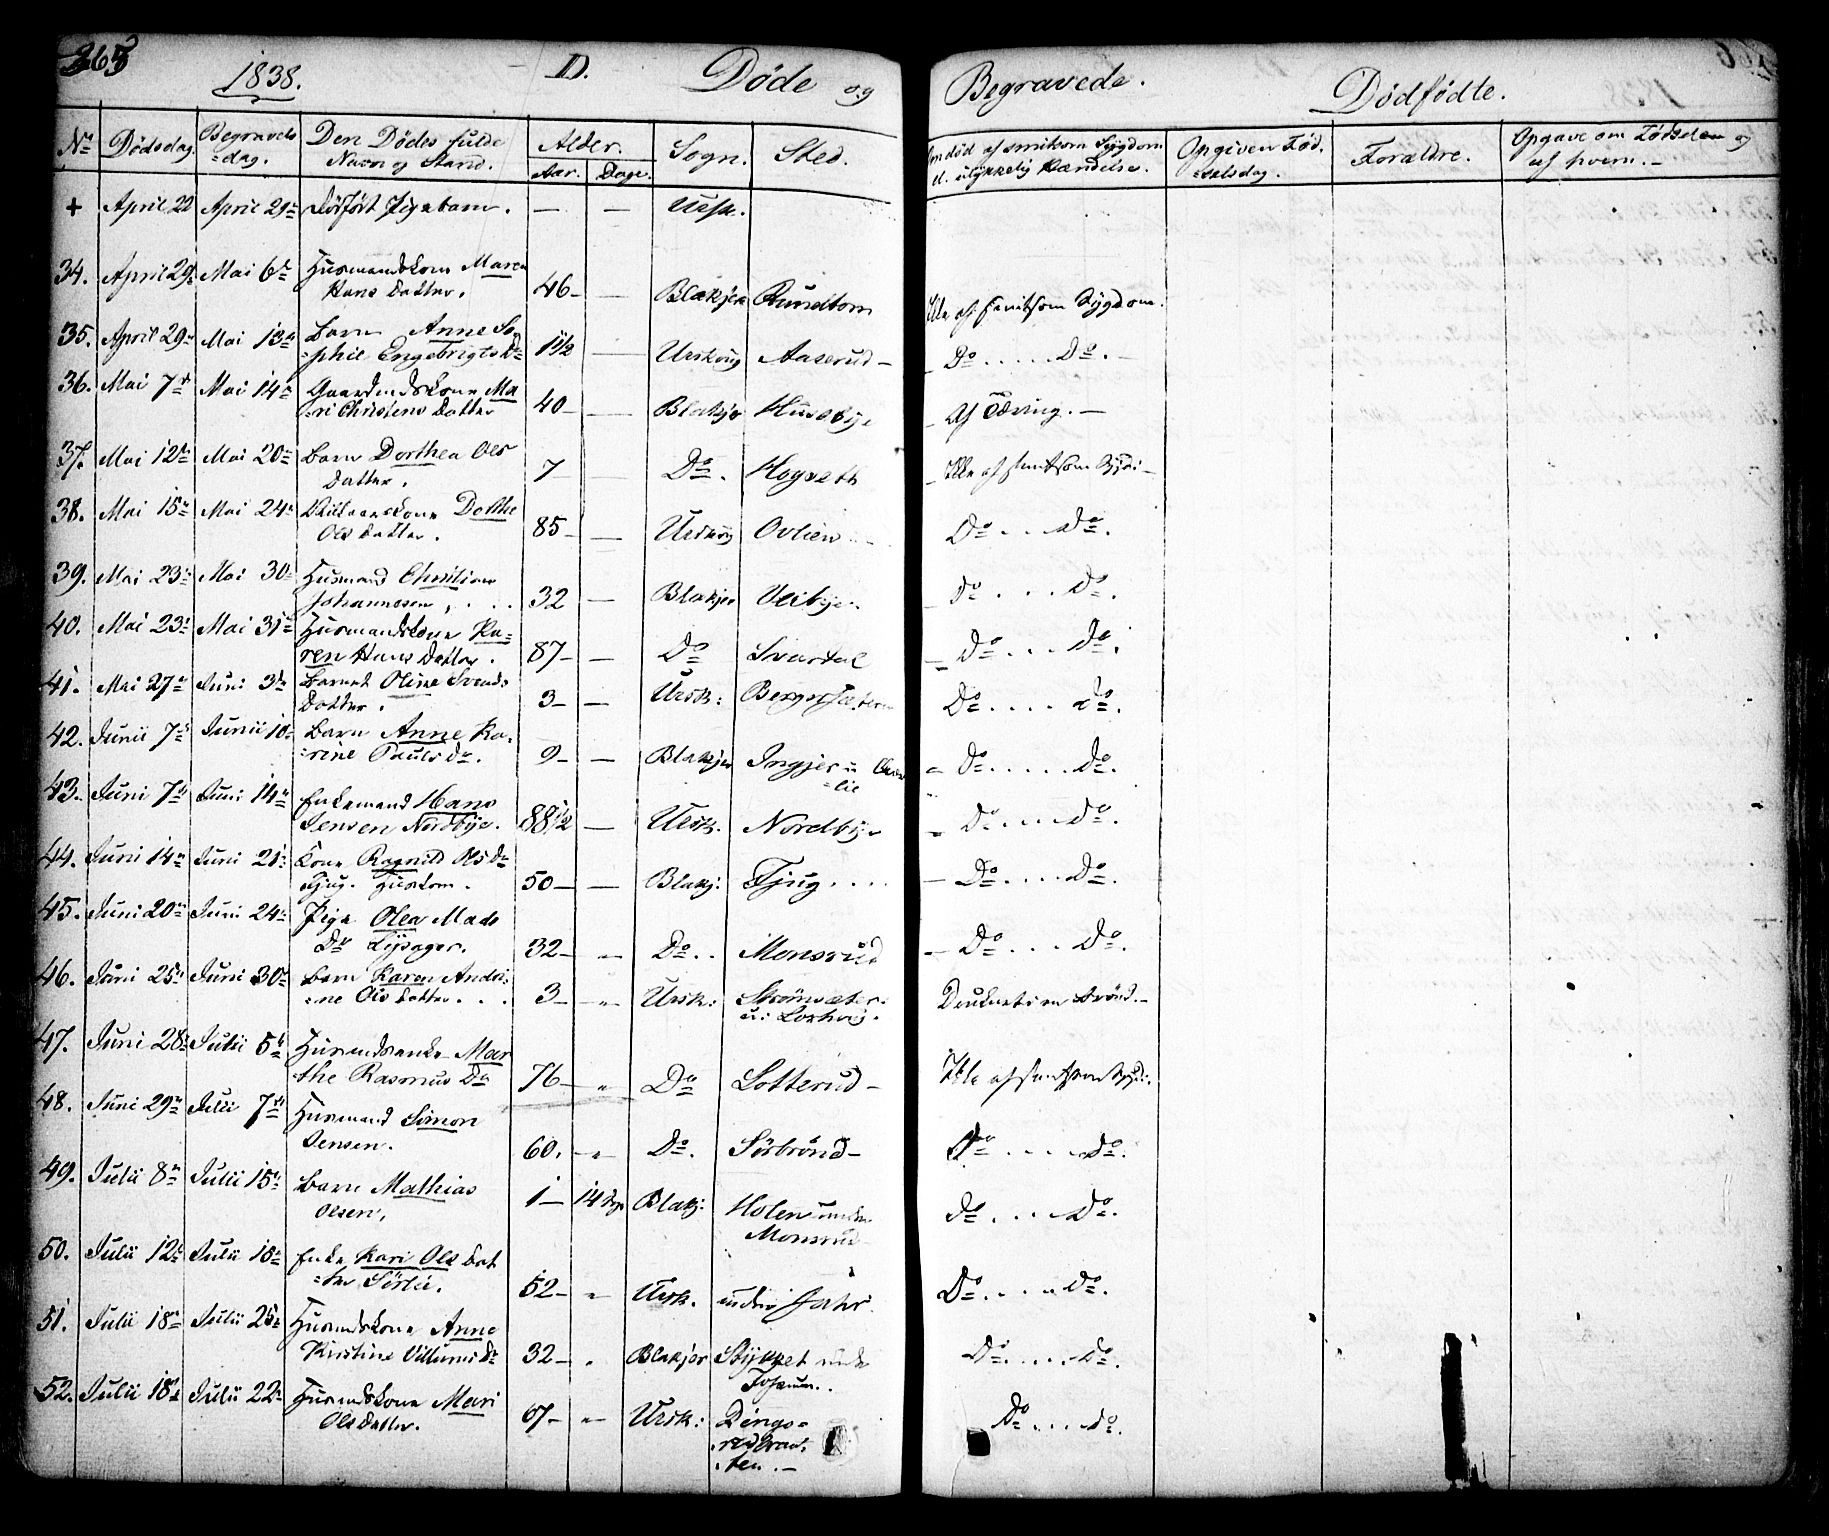 265
1838. D. Døde og Begravede. Dødfødte.
No Dødsdag. Begravels=dag. Den Dødes fulde Navn og Stand. Alder. Aar. Dage. Sogn. Sted. Om død af smitsom Sygdom el. ulykkelig Hændelse. Opgiven Fødselsdag. Forældre. Opgave om Fødselen og af hvem.
+ April 22 April 29 dødfødt Pigebarn. — — Ursk.
34. April 29 Mai 6te Huusmandskone Maren
Hans Datter. 46 — Blakjer Rundtom Ikke af smitsom Sygdom.
35. April 29 Mai 13 Barn Anne So
=phie Engebrigts Dr 1 1/2 — Urskoug Aaserud — Do . . . . Do.
36. Mai 7de Mai 14 Gaardmdskone Ma
ri Christens Datter 40 — Blakjer Huusbye Af Tæring. —
37. Mai 12te Mai 20 Barn Dorthea Ols
Datter. 7 — Do. Hogseth Ikke af smitsom Sygd.
38. Mai 15 Mai 24 Dorthe
Ols Datter. 85 — Urskoug Ovlien Do . . . do.
39. Mai 23 Mai 30 Husmand Christian
Johannesen, . . . 32 — Blakjer Veibye Do . . . . Do.
40. Mai 23 Mai 31 Husmandskone Ka=
ren Hans Datter. 87 — Do Svartal Do . . . . Do.
41. Mai 27 Juni 3d Barnet Oline Svends
Datter. 3 — Ursk: Bergersæteren Do . . . . do.
42. Junii 7de Junii 10 Barn Anne Ka=
=rine Pauls Dr. 9 — Blakjer Ingjer u
=lie Do . . . . . Do.
43. Juni 7de Juni 14 Enkemand Hans
Jensen Nordbye. 88 1/2 — Ursk. Nordbye Do . . . . Do.
44. Juni 14 Juni 21 Kone Ragnild Ols Dr
Tjug. Huuskone. 50 — Blakj: Tjug . . . . Do . . . . Do.
45. Juni 20 Juni 24 Pige Olea Mads
Dr Lysager. 32 — Do. . Monsrud — Do . . . . Do.
46. Juni 25 Juni 30 Barn Karen Andri
=ne Ols Datter . . . 3 — Ursk: Strømsæter
u: Druknet i en Brønd. —
47. Juni 28 Julii 5te Husmdsenke Mar
=the Rasmus Dr 76 — Do Lotterud — Ikke af smitsom Sygd.
48. Juni 29 Julii 7de Husmand Simon
Jensen. 60. — Do. Sørbrønd — Do . . . . do.
49. Julii 8 Julii 15 Barn Mathias
Olsen, 1 — 14 Dge Blakj: Holen under
Monsrud do . . . . Do.
50. Julii 12 Julii 18 Enke Kari Ols Dat
=ter Sørlie. 52 — Ursk. under Do . . . . Do.
51. Julii 18 Julii 25 Husmdskone Anne
Kirstine Villums Dr 32 — Blakjer Stykket under
Do . . . . Do.
52. Julii 18 Julii 22 Husmdskone Mari
Ols Datter. 67 — Ursk: Dings=
Do . . . . Do.